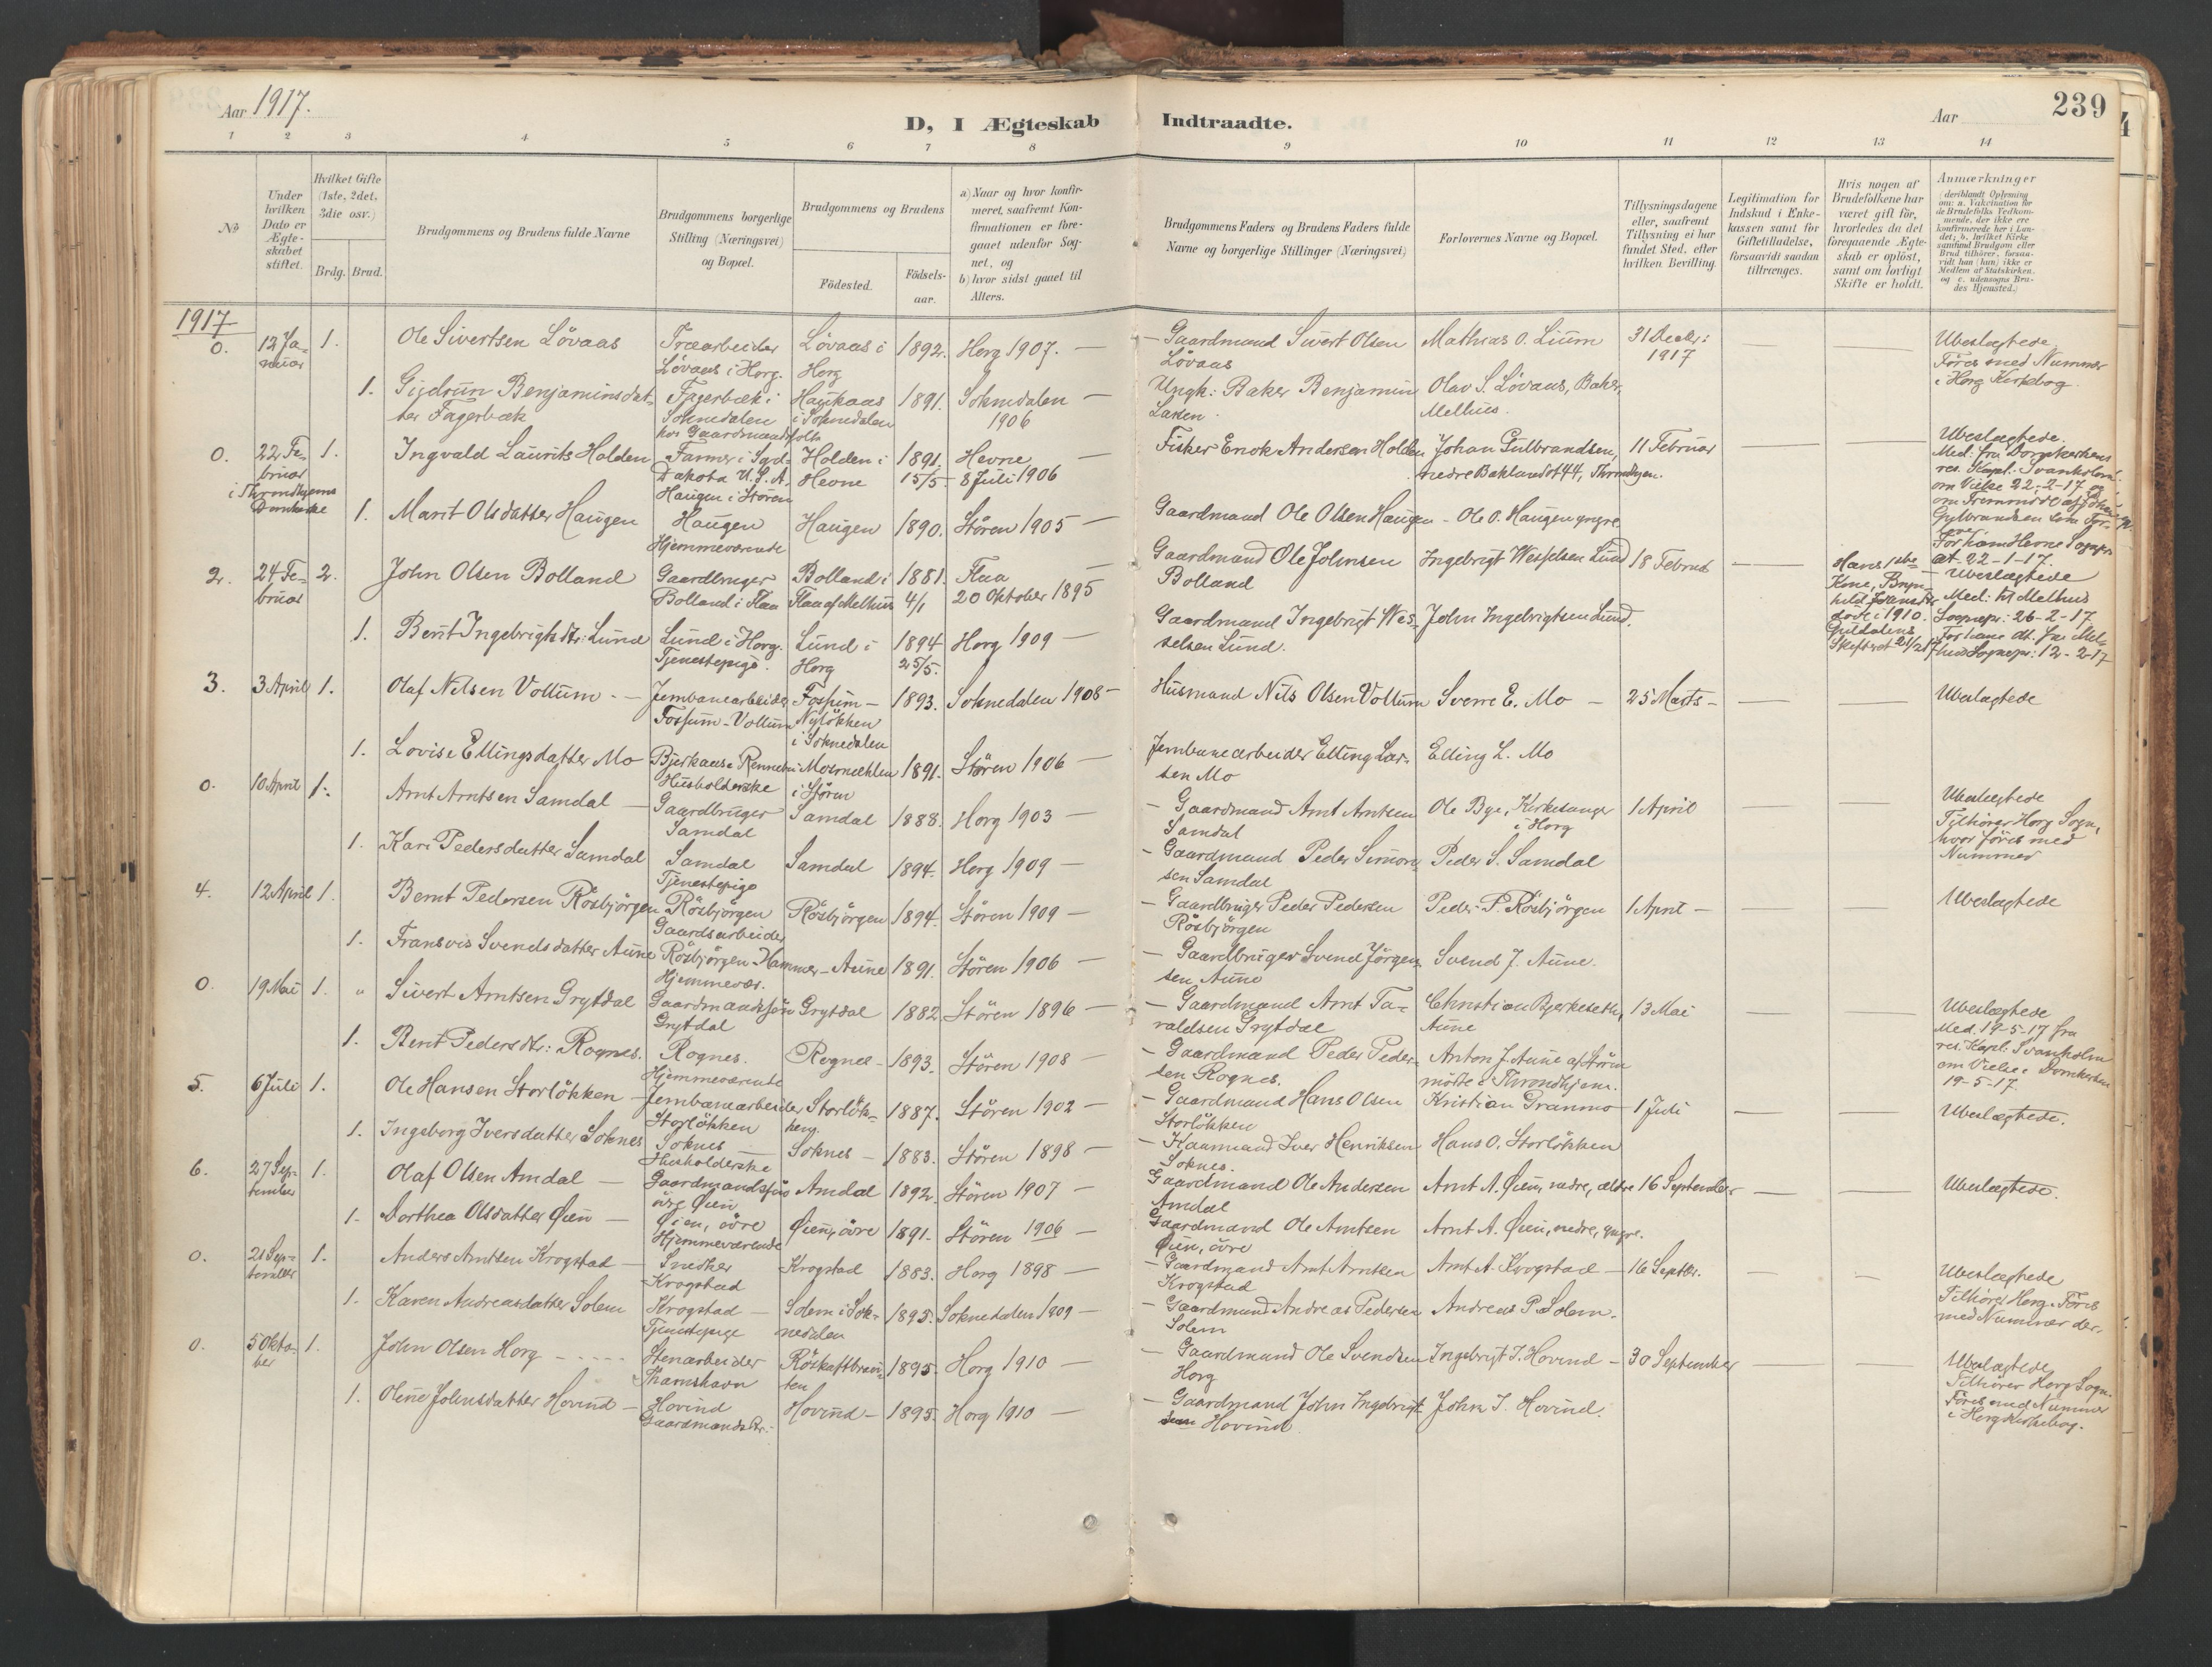 Aar 1917.
D, I Ægteskab Indtraadte.
Aar
239
1 2 3 4 5 6 7 8 9 10 11 12 13 14
No
Under hvilken Dato er Ægteskabet stiftet.
Hvilket Gifte (1ste, 2det, 3die osv.)
Brdg. Brud.
Brudgommens og Brudens fulde Navne
Brudgommens borgerlige Stilling (Næringsvei) og Bopæl.
Brudgommens og Brudens
Födested.
Födselsaar.
a) Naar og hvor konfirmeret, saafremt Konfirmationen er foregaaet udenfor Sognet, og
b) hvor sidst gaaet til Alters.
Brudgommens Faders og Brudens Faders fulde Navne og borgerlige Stillinger (Næringsvei)
Forlovernes Navne og Bopæl.
Tillysningsdagene eller, saafremt Tillysning ei har fundet Sted, efter hvilken Bevilling.
Legitimation for Indskud i Enkekassen samt for Giftetilladelse, forsaavidt saadan tiltrænges.
Hvis nogen af Brudefolkene har været gift för, hvorledes da det foregaaende Ægteskab er oplöst, samt om lovligt Skifte er holdt.
Anmærkninger
(deriblandt Oplysning om: a. Vakcination for de Brudefolks Vedkommende, der ikke ere konfirmerede her i Landet; b. hvilket Kirkesamfund Brudgom eller Brud tilhörer, forsaavidt han (hun) ikke er Medlem af Statskirken, og c. udensogns Brudes Hjemsted.)
1917
0. 12 Januar 1. Ole Sivertsen Lövaas Træarbeider Lövaas i Horg. Lövaas i Horg 1892. Horg 1907. — Gaardmand Sivert Olsen Lövaas Mathias O. Lium 31 Decbr: 1917 Ubeslægtede. Föres med Nummer i Horg Kirkebog.
1. Benjaminsdatter Fagerbæk Fagerbæk i Soknedalen hos Gaardmandsfolk Haukaas i Soknedalen 1891. Soknedalen 1906 Ungk: Baker Benjamin Larsen. Olav S. Lövaas, Baker, Melhus.
0. 22 Februar i Throndhjems Domkirke 1. Ingvald Laurits Holden Farmer i Syd-Dakota U.S.A. Haugen i Stören Holden i Hevne 1891. 15/5 Hevne 8 Juli 1906 Fisker Enok Andersen Holden Johan Gulbrandsen, nedre Baklandet 44, Throndhjem. 11 Februar Ubeslægtede. Med: fra Domkirkens res. Kapl: Svanholm om Vielse 22-2-17 og om Fremmöde af Johan Gulbrandsen som Forlover. For ham Hevne Sognepr. at 22-1-17.
1. Marit Olsdatter Haugen Haugen Hjemmeværende Haugen 1890. Stören 1905 — Gaardmand Ole Olsen Haugen - Ole O. Haugen yngre
2. 24 Februar 2. John Olsen Bolland Gaardbruger Bolland i Flaa Bolland i Flaa af Melhus 1881 4/1 Flaa 20 Oktober 1895 Gaardmand Ole Johnsen Bolland Ingebrigt Wesselsen Lund 18 Februar Hans 1ste Kone, døde i 1910. Guldalens Skifteret Ubeslægtede Med: til Melhus Sognepr: 26-2-17. Forhane at. fra Melhus Sognepr: 12-2-17
1. Berit Ingebrigtsdtr: Lund Lund i Horg. Tjenestepige. Lund i Horg 1894 25/5. Horg 1909 — Gaardmand Ingebrigt Wesselsen Lund. John Ingebrigtsen Lund.
3. 3 April 1. Olaf Nilsen Vollum — Jernbanearbeider Fossum-Vollum Fossum - Nylökken i Soknedalen 1893. Soknedalen 1908 — Husmand Nils Olsen Vollum Sverre E. Mo — 25 Marts — Ubeslægtede
1. Lovise Ellingsdatter Mo Bjerkaas i Rennebu Husholderske Mosmælen i Stören 1891. Stören 1906 — Jernbanearbeider Elling Larsen Mo Elling L. Mo
0. 10 April 1. Arnt Arntsen Samdal — Gaardbruger Samdal Samdal 1888. Horg 1903 — Gaardmand Arnt Arntsen Samdal Ole Bye, Kirkesanger i Horg 1 April Ubeslægtede Tilhörer Horg Sogn, hvor föres med Nummer
1. Kari Pedersdatter Samdal Samdal Tjenestepige Samdal 1894. Horg 1909 — Gaardmand Peder Simonsen Samdal Peder S. Samdal
4. 12 April 1. Bernt Pedersen Rösbjörgen Rösbjörgen Gaardsarbeider Rösbjörgen 1894. Stören 1909 — Gaardbruger Peder Pedersen Rösbjörgen Peder P. Rösbjörgen 1 April — Ubeslægtede
1. Fransvis Svendsdatter Aune Rösbjörgen Hjemmevær. Hammer-Aune 1891. Stören 1906 — Gaardbruger Svend Jörgensen Aune Svend J. Aune.
0. 19 Mai 1. " Sivert Arntsen Grytdal Gaardmandssön Grytdal Grytdal 1882. Stören 1896 — Gaardmand Arnt Taraldsen Grytdal Christian Bjerkeseth, Aune 13 Mai Ubeslægtede Med. 19-5-17 fra res. Kapl: Svanholm om Vielse i Domkirken 19-5-17.
1. Berit Pedersdtr: Rognes. Rognes. Hjemmeværende Rognes — 1893. Stören 1908 — Gaardmand Peder Pedersen Rognes. Anton J. Aune af Stören mödte i Throndhjem.
5. 6 Juli 1. Ole Hansen Storlökken — Jernbanearbeider Storlökken 1887. Stören 1902 — Gaardmand Hans Olsen Storlökken Kristian Granmo — 1 Juli Ubeslægtede.
1. Ingeborg Iversdatter Soknes Soknes Husholderske Soknes — 1883. Stören 1898 — Kaarmand Iver Henriksen Soknes. Hans O. Storlökken
6. 27 September 1. Olaf Olsen Amdal — Gaardmandssön övre Øien Amdal 1892. Stören 1907 — Gaardmand Ole Andersen Amdal Arnt A. Øien, nedre, ældre 16 September Ubeslægtede.
1. Dorthea Olsdatter Øien — Øien, övre Hjemmeværende Øien, övre 1891. Stören 1906 Gaardmand Ole Arntsen Øien, övre Arnt A. Øien, nedre, yngre.
0. 21 September 1. Anders Arntsen Krogstad — Snedker Krogstad Krogstad 1883. Horg 1898 — Gaardmand Arnt Arntsen Krogstad Arnt A. Krogstad — 16 Septbr. Ubeslægtede Tilhörer Horg. Föres med Nummer der.
1. Karen Andreasdatter Solem Krogstad — Tjenestepige Solem i Soknedalen 1893. Soknedalen 1909 — Gaardmand Andreas Pedersen Solem Andreas P. Solem.
0. 5 Oktober 1. John Olsen Horg — Stenarbeider Thamshavn Röskaftbrauten 1895. Horg 1910 — Gaardmand Ole Svendsen Horg Ingebrigt J. Hovind — 30 September Ubeslægtede Tilhörer Horg Sogn. Föres med Nummer i Horg Kirkebog.
1. Oline Johnsdatter Hovind — Hovind Gaardmandsdtr: Hovind — 1895. Horg 1910 — Gaardmand John Ingebrigtsen Hovind John I. Hovind.